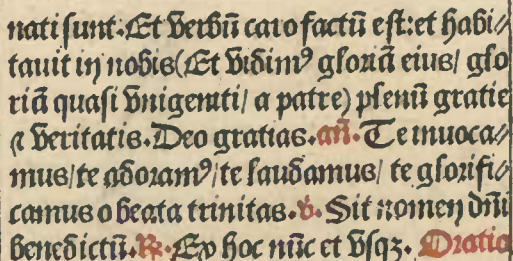 nati sunt. Et verbū caro factū est: et habi⸗
tauit in nobis (Et vidimꝰ gloriā eius/ glo
riā quasi vnigeniti/ a patre) plenū gratie
⁊ veritatis. Deo gratias. añ. Te inuoca⸗
mus/ te adoramꝰ/ te laudamus/ te glorifi⸗
camus o beata trinitas. v̓. Sit nomen dñi
benedictū. ℟. Ex hoc nūc et vsqꝫ. Oratio